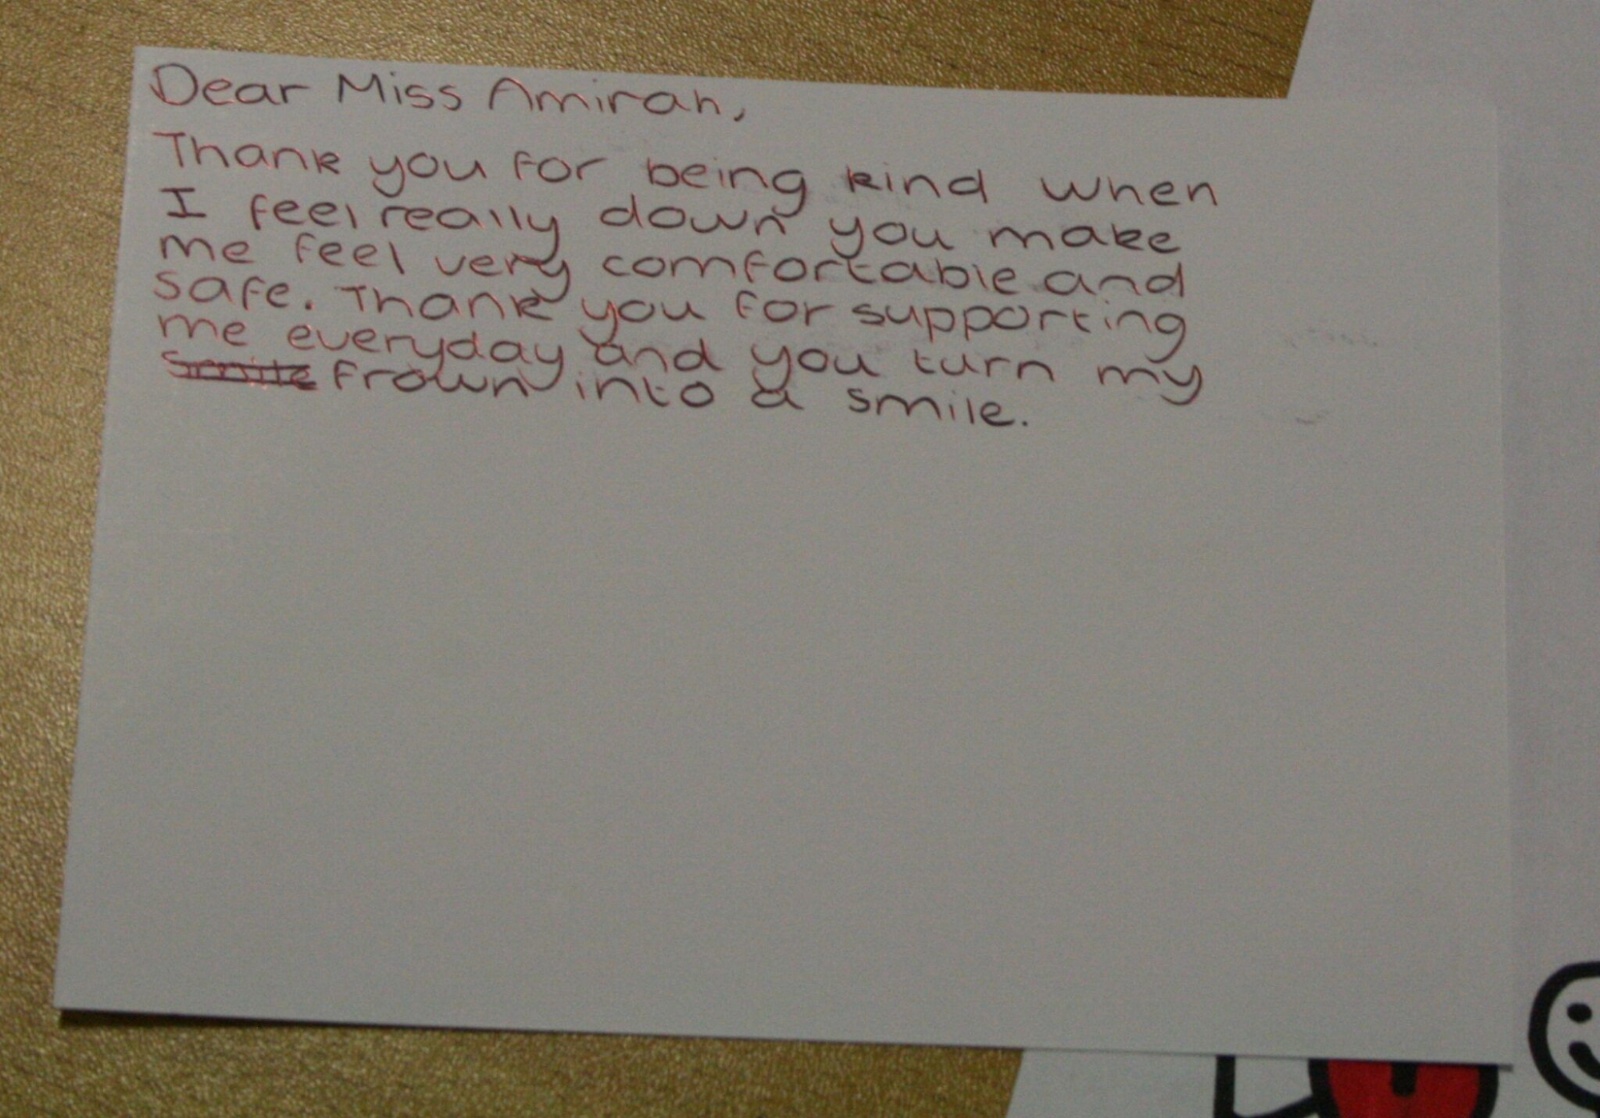 Dear Miss Amirah,
Thank you for being kind when
I feel really down you make
me feel very comfortable and
safe. Thank you for supporting
me everyday and you turn my
frown into a smile.